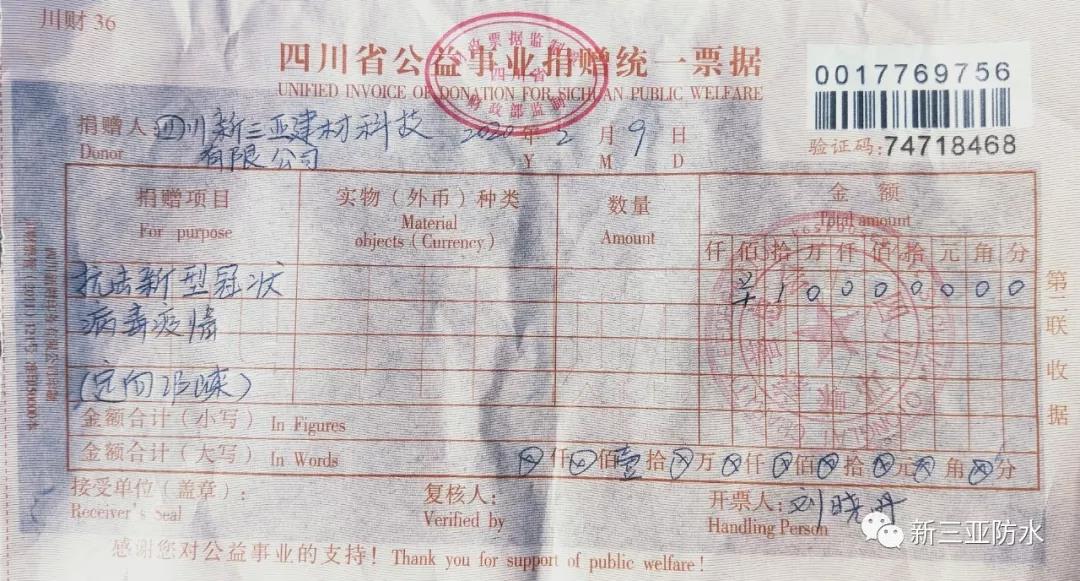 川财 36
四川省公益事业捐赠统一票据
UNIFIED INVOICE OF DONATION FOR SICHUAN PUBLIC WELFARE
四川省
财政部监制
0017769756
验证码:74718468
捐赠人 四川新三亚建材科技 2020 年 2 月 9 日
Donor 有限公司 Y M D
捐赠项目 实物(外币)种类 数量 金额
For purpose Material objects(Currency) Amount Total amount
仟 佰 拾 万 仟 佰 拾 元 角 分
抗击新型冠状 ¥ 1 0 0 0 0 0 0 0
病毒疫情
(定向邛崃)
金额合计(小写) In Figures
金额合计(大写) In Words ⊗仟⊗佰壹拾⊗万⊗仟⊗佰⊗拾⊗元⊗角⊗分
第二联收据
接受单位(盖章): 复核人: 开票人:刘晓丹
Receiver's Seal Verified by Handling Person
感谢您对公益事业的支持! Thank you for support of public welfare!
新三亚防水